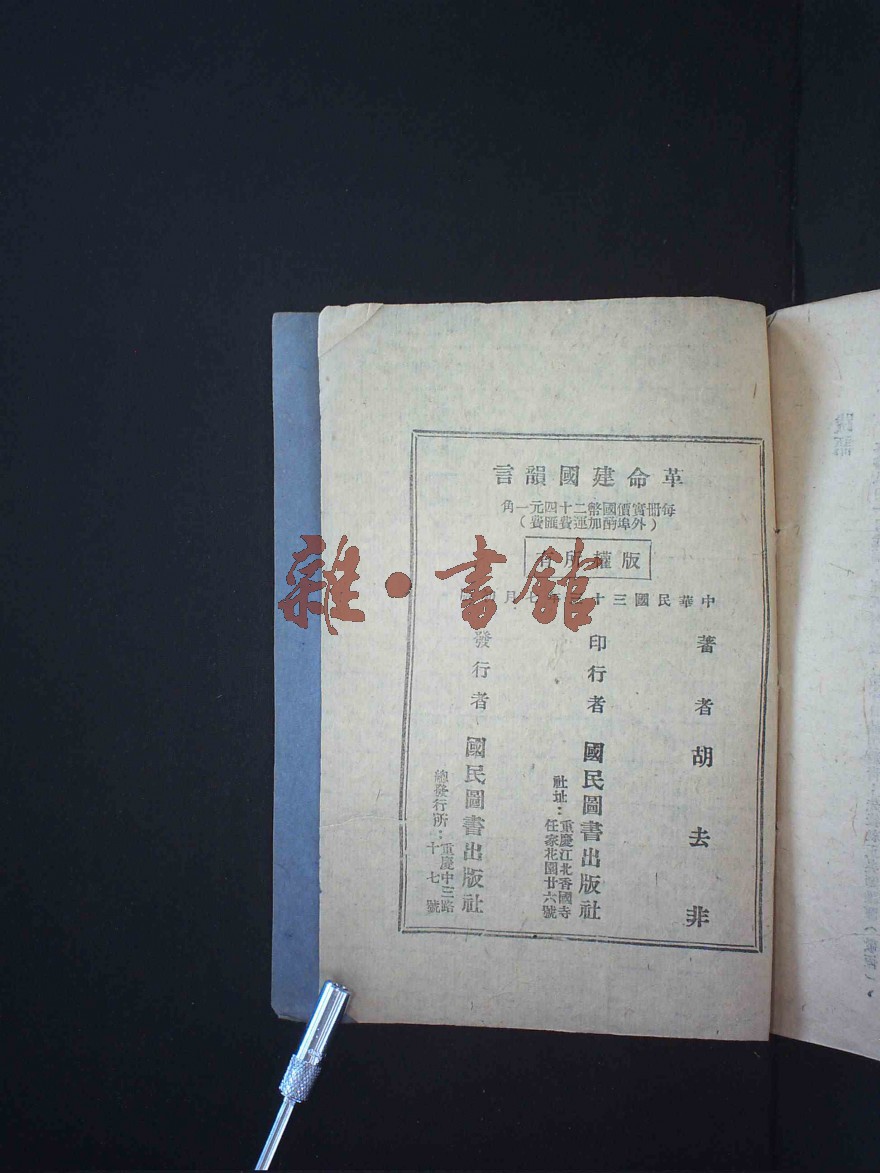 革命建國韻言
每冊實價國幣二十四元一角
（外埠酌加運費匯費）
版權所
中華民國三十 七月
著者 胡去非
印行者 國民圖書出版社
社址：重慶江北香國寺
任家花園廿六號
發行者 國民圖書出版社
總發行所：重慶中三路
十七號
雜·書館